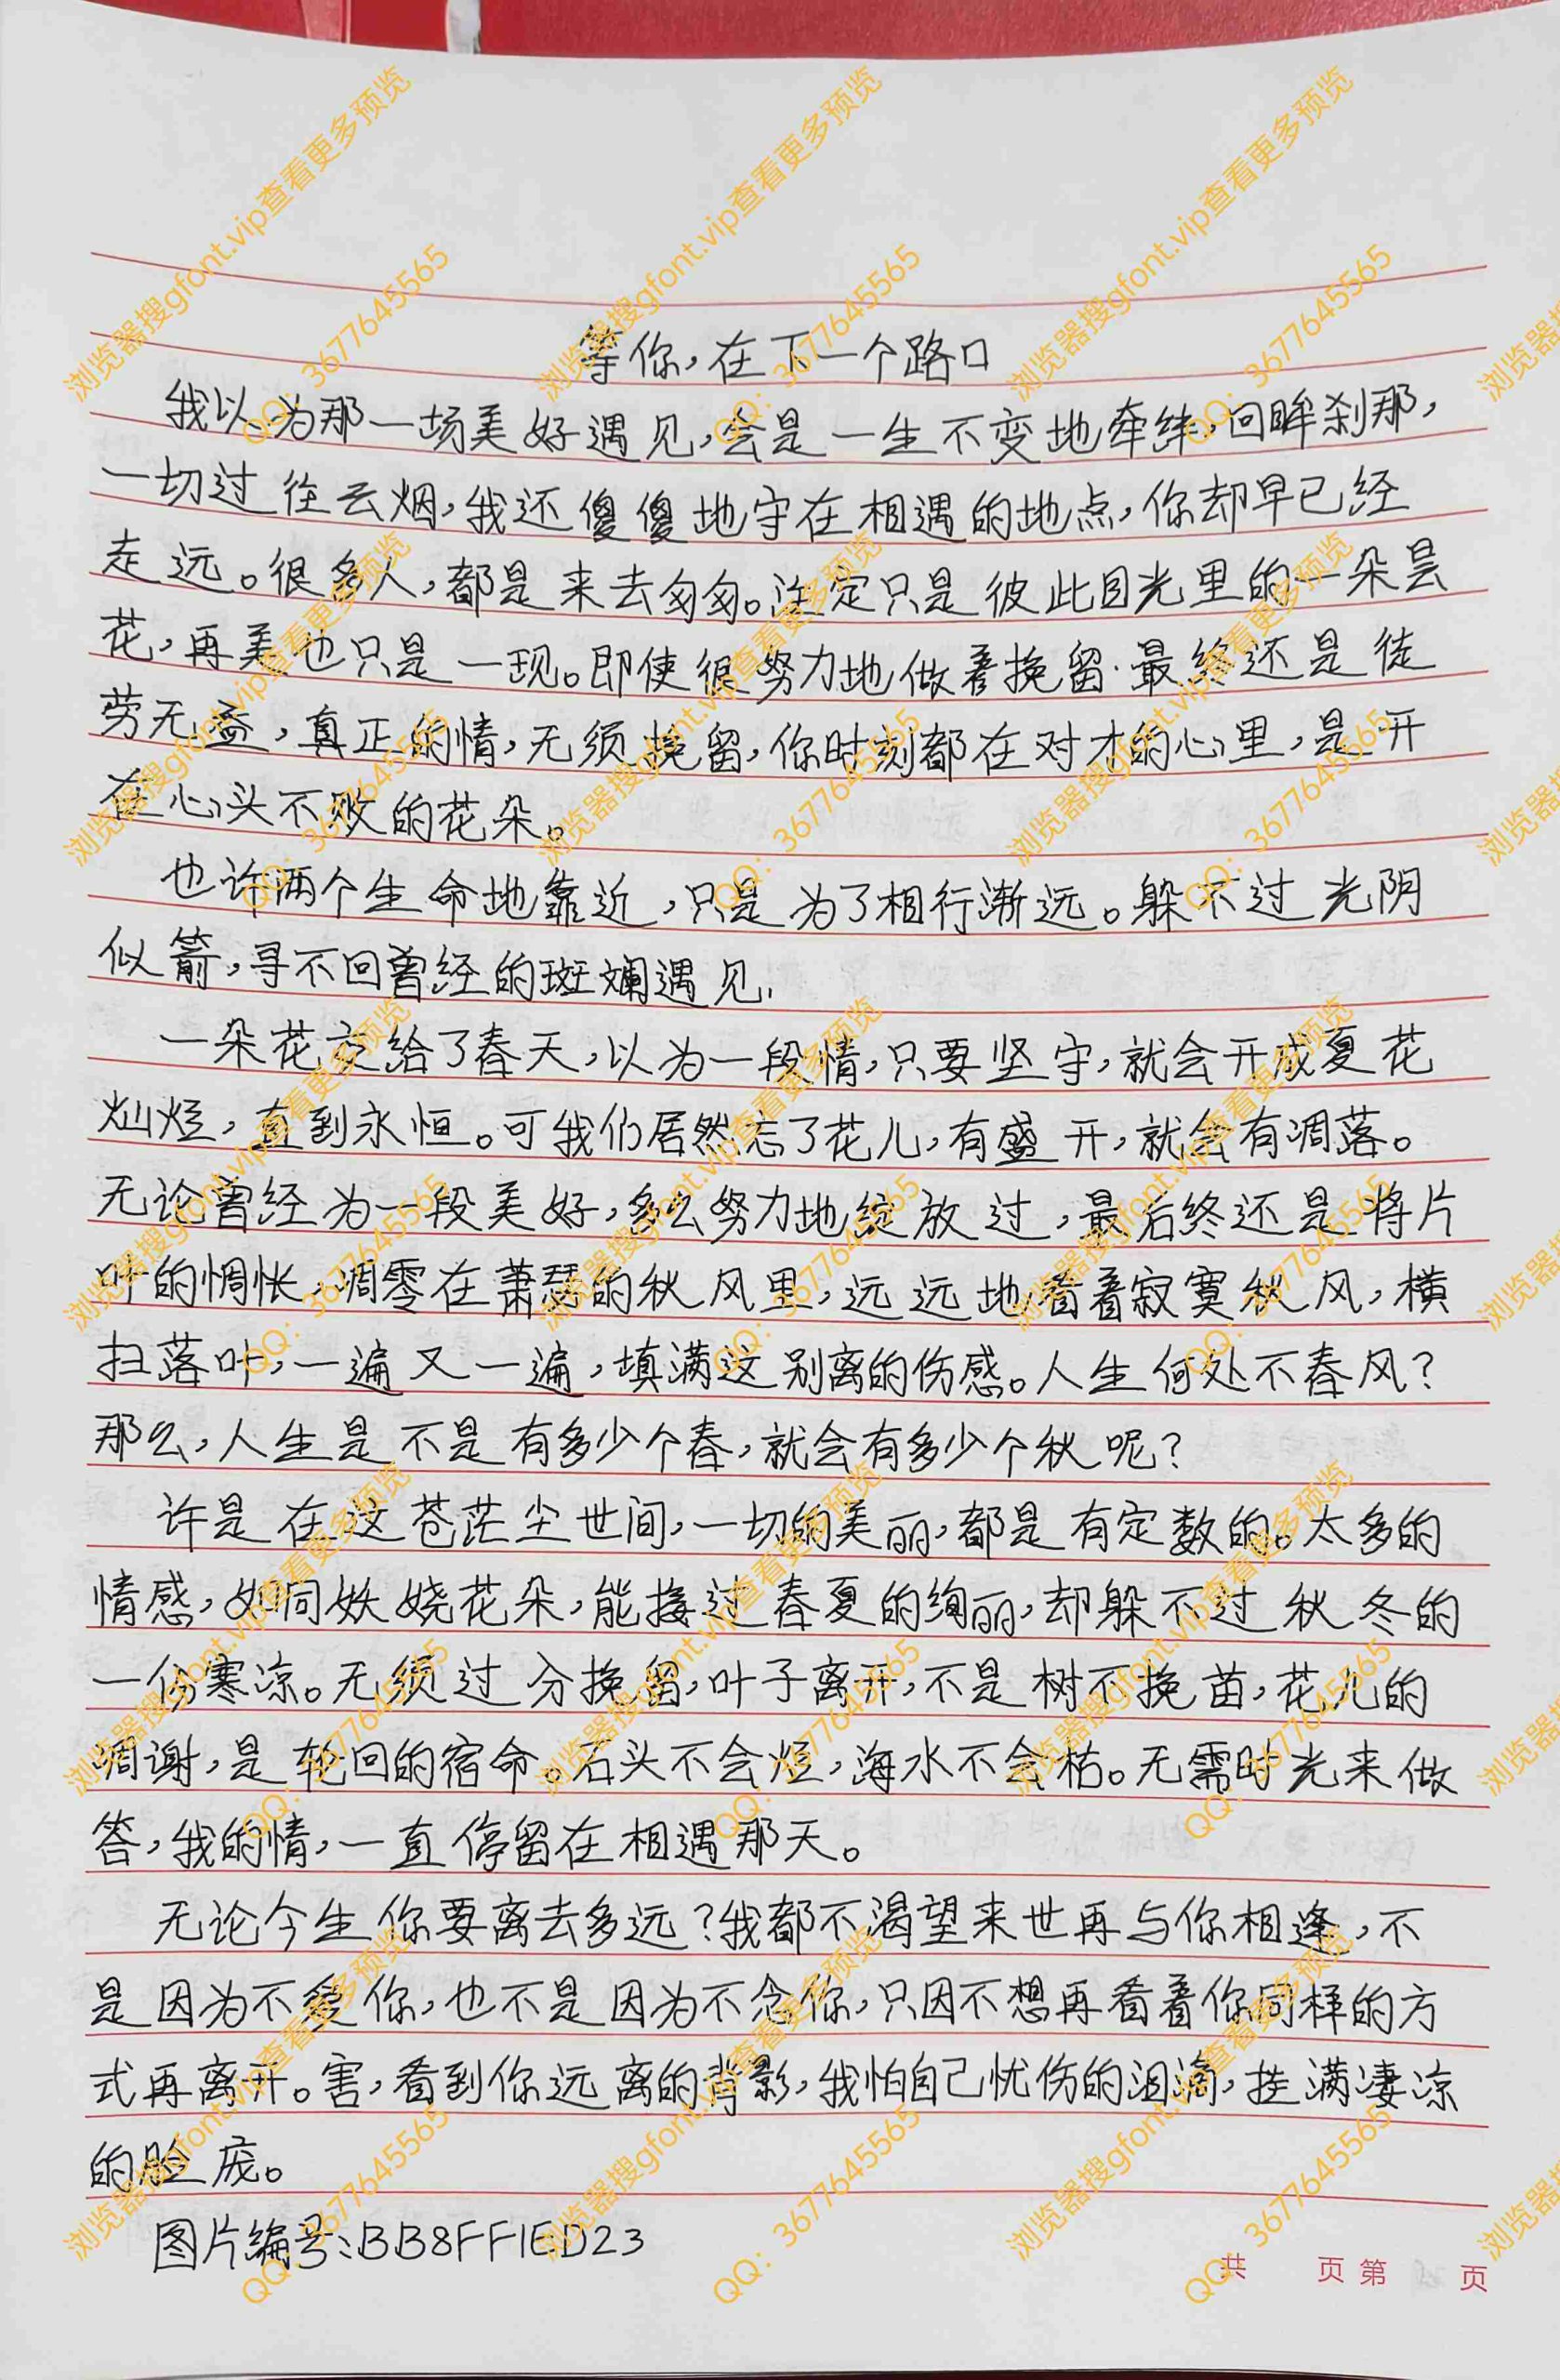 等你,在下一个路口
我以为那一场美好遇见,会是一生不变地牵绊,回眸刹那,
一切过往云烟,我还傻傻地守在相遇的地点,你却早已经
走远。很多人,都是来去匆匆。注定只是彼此目光里的一朵昙
花,再美也只是一现。即使很努力地做着挽留.最终还是徒
劳无益,真正的情,无须挽留,你时刻都在对才的心里,是开
在心头不败的花朵。
也许两个生命地靠近,只是为了相行渐远。躲不过光阴
似箭,寻不回曾经的斑斓遇见.
一朵花交给了春天,以为一段情,只要坚守,就会开成夏花
灿烂,直到永恒。可我们居然忘了花儿,有盛开,就会有凋落。
无论曾经为一段美好,多么努力地绽放过,最后终还是将片
叶的惆怅,凋零在萧瑟的秋风里,远远地看着寂寞秋风,横
扫落叶,一遍又一遍,填满这别离的伤感。人生何处不春风?
那么,人生是不是有多少个春,就会有多少个秋呢?
许是在这苍茫尘世间,一切的美丽,都是有定数的。太多的
情感,如同妖娆花朵,能接过春夏的绚丽,却躲不过秋冬的
一份寒凉。无须过分挽留,叶子离开,不是树不挽苗,花儿的
凋谢,是轮回的宿命。石头不会烂,海水不会枯。无需时光来做
答,我的情,一直停留在相遇那天。
无论今生你要离去多远?我都不渴望来世再与你相逢,不
是因为不爱你,也不是因为不念你,只因不想再看着你同样的方
式再离开。害,看到你远离的背影,我怕自己忧伤的泪滴,挂满凄凉
的脸庞。
图片编号:BB8FF1ED23
共 页 第 页
浏览器搜gfont.vip查看更多预览
QQ: 3677645565